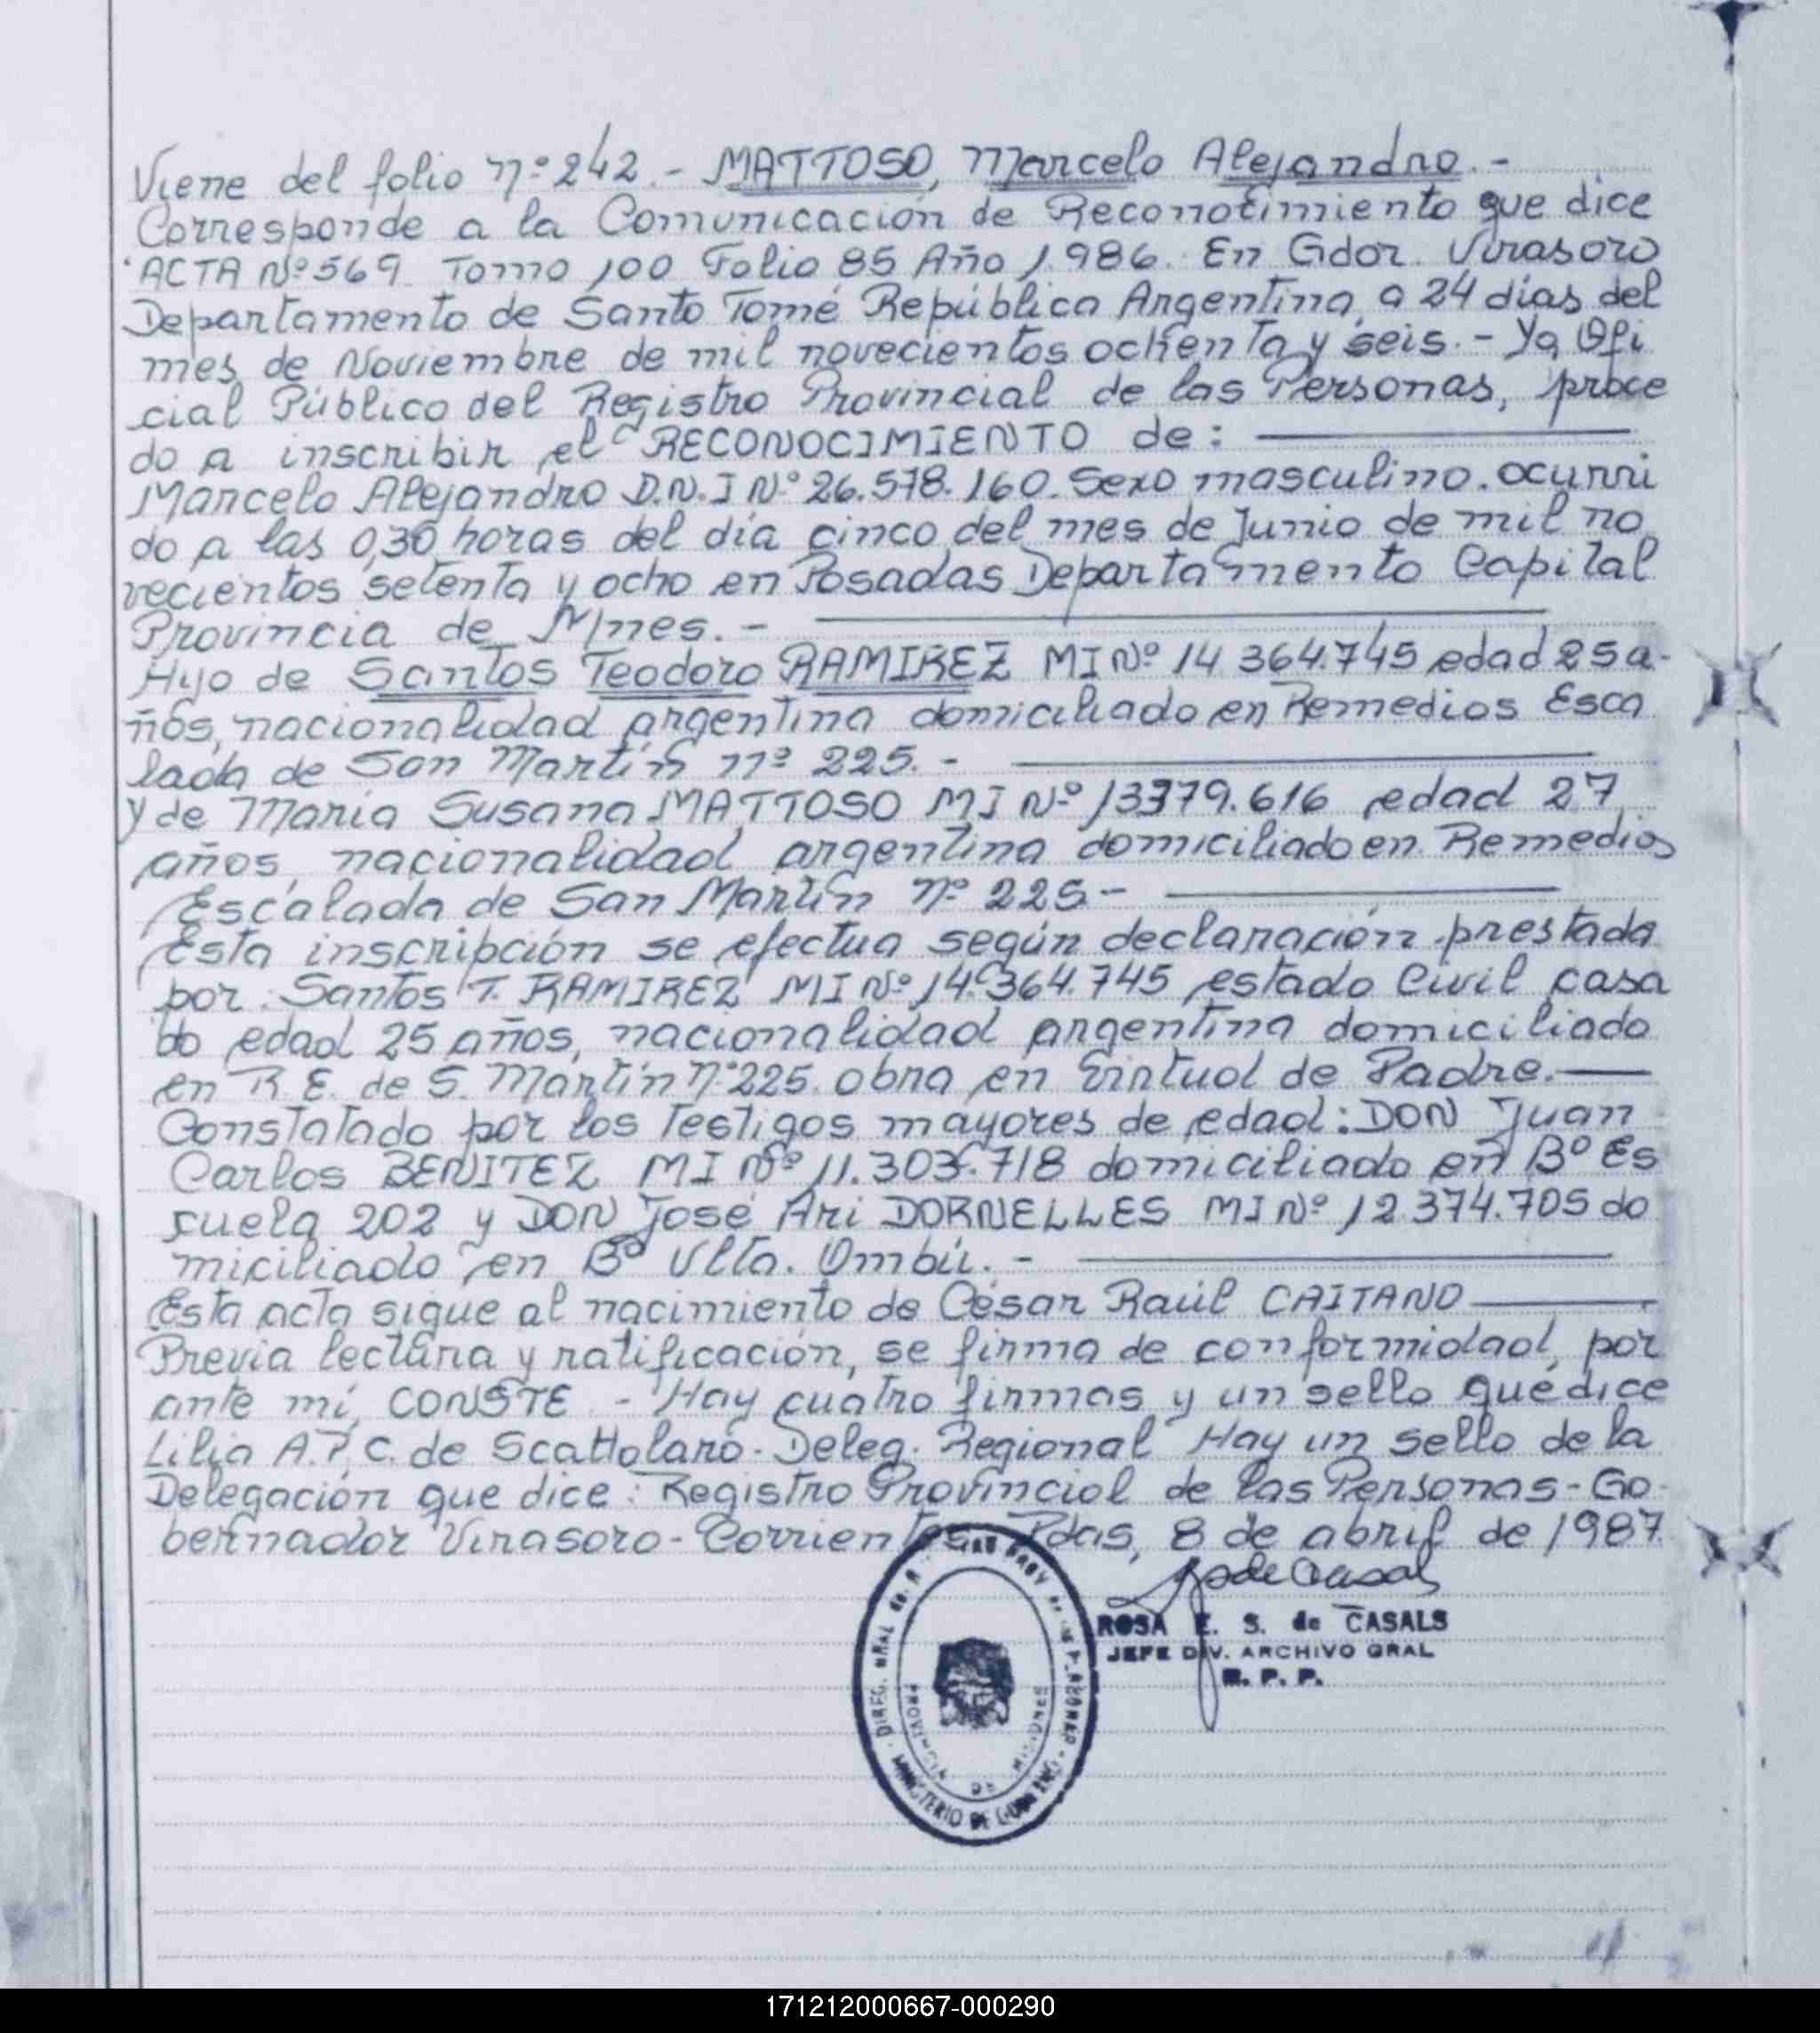 Viene del folio nº 242.- MATTOSO, Marcelo Alejandro.-
Corresponde a la Comunicación de Reconocimiento que dice
ACTA Nº 569 Tomo 100 Folio 85 Año 1.986. En Gdor. Virasoro
Departamento de Santo Tomé República Argentina, a 24 días del
mes de Noviembre de mil novecientos ochenta y seis.- Yo, Ofi
cial Público del Registro Provincial de las Personas, proce
do a inscribir el RECONOCIMIENTO de:
Marcelo Alejandro D.N.I Nº 26.578.160. Sexo masculino. ocurri
do a las 0,30 horas del día cinco del mes de Junio de mil no
vecientos setenta y ocho en Posadas Departamento Capital
Provincia de Mnes.-
Hijo de Santos Teodoro RAMIREZ MI Nº 14.364.745 edad 25 a-
ños, nacionalidad argentina domiciliado en Remedios Esca
lada de San Martín nº 225.-
y de María Susana MATTOSO MI Nº 13379.616 edad 27
años, nacionalidad argentina domiciliado en Remedios
Escalada de San Martín nº 225-
Esta inscripción se efectua según declaración prestada
por: Santos T. RAMIREZ MI Nº 14.364.745 estado Civil casa
do edad 25 años, nacionalidad argentina domiciliado
en R. E. de S. Martín Nº 225. obra en de Padre.-
Constatado por los Testigos mayores de edad: DON Juan
Carlos BENITEZ MI Nº 11.303.718 domiciliado en Bº Es
cuela 202 y DON José Ari DORNELLES MI Nº 12.374.705 do
miciliado en Bº Vlla. Ombú.-
Esta acta sigue al nacimiento de César Raúl CAITANO
Previa lectura y ratificación, se firma de conformidad, por
ante mí, CONSTE.- Hay cuatro firmas y un sello que dice
Lilia A. P. C. de Scattolaro- Deleg. Regional Hay un sello de la
Delegación que dice: Registro Provincial de las Personas- Go-
bernador Virasoro- Corrientes. Pdas, 8 de abril de 1987.
ROSA E. S. de CASALS
JEFE DIV. ARCHIVO GRAL
R. P. P.
PROVINCIA DE MISIONES
MINISTERIO DE GOBIERNO
171212000667-000290